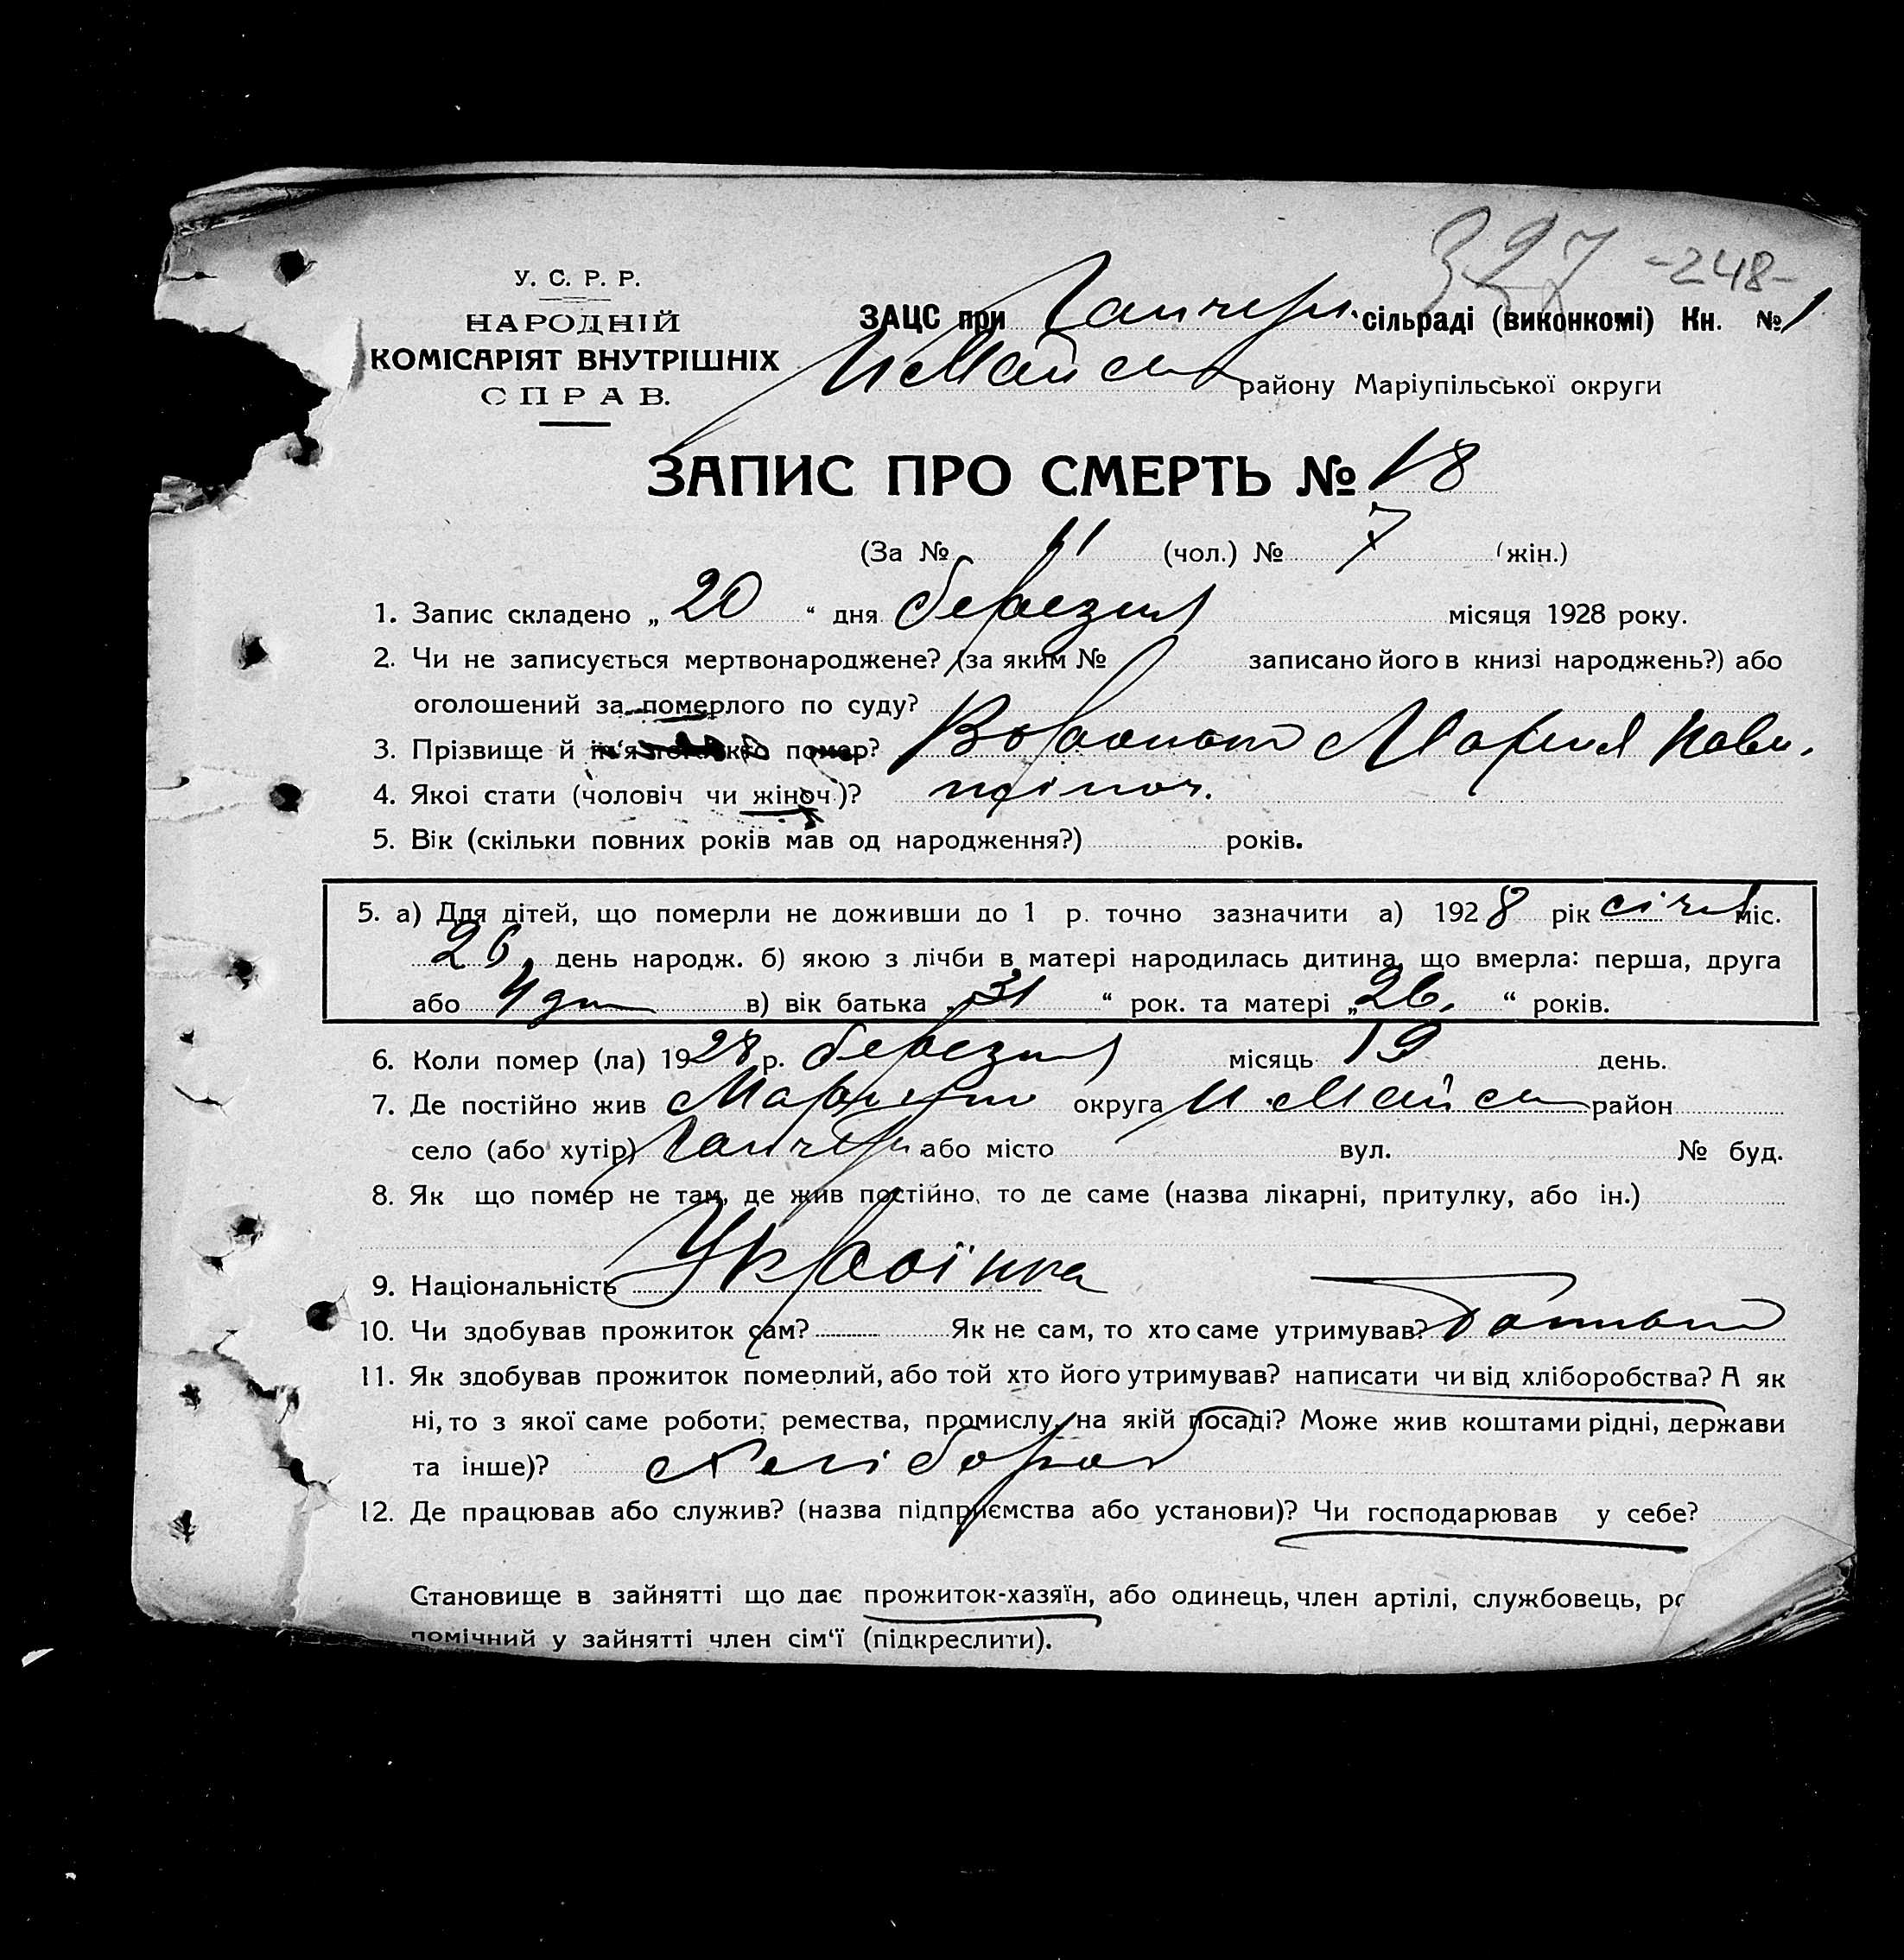 327 -248-
У. С. Р. Р.
НАРОДНІЙ
КОМІСАРІЯТ ВНУТРІШНІХ
СПРАВ.
ЗАЦС при сільраді (виконкомі) Кн. № 1
району Маріупільської округи
ЗАПИС ПРО СМЕРТЬ № 18
(За № 11 (чол.) № 7 (жін.)
1. Запис складено „ 20 “ дня березня місяця 1928 року.
2. Чи не записується мертвонароджене? (за яким № записано його в книзі народжень?) або
оголошений за померлого по суду?
3. Прізвище й ім'я помер? Мария Павл.
4. Якоі стати (чоловіч чи жіноч)? жіноч.
5. Вік (скільки повних років мав од народження?) років.
5. а) Для дітей, що померли не доживши до 1 р. точно зазначити а) 1928 рік січня міс.
26, день народж. б) якою з лічби в матері народилась дитина, що вмерла: перша, друга
або 4 в) вік батька „ 31 “ рок. та матері „ 26. “ років.
6. Коли помер (ла) 1928 р. березня місяць 19 день.
7. Де постійно жив округа район
село (або хутір) або місто вул. № буд.
8. Як що помер не там, де жив постійно, то де саме (назва лікарні, притулку, або ін.)
9. Національність Українка
10. Чи здобував прожиток сам? Як не сам, то хто саме утримував? Батько
11. Як здобував прожиток померлий, або той хто його утримував? написати чи від хліборобства? А як
ні, то з якої саме роботи, ремества, промислу, на якій посаді? Може жив коштами рідні, держави
та інше)? Хлібороб
12. Де працював або служив? (назва підприємства або установи)? Чи господарював у себе?
Становище в зайнятті що дає прожиток-хазяїн, або одинець, член артілі, службовець,
помічний у зайнятті член сім'ї (підкреслити).